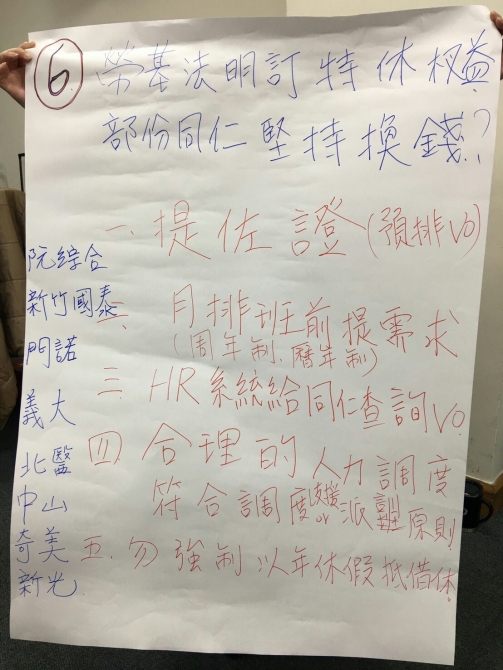 6.
勞基法明訂特休權益?
部份同仁堅持換錢?
一、提佐證(預排VO)
二、月排班前提需求
(周年制、曆年制)
三 HR系統給同仁查詢VO.
四 合理的人力調度
符合調度支援or派班原則
五、勿強制以年休假抵借休.
阮綜合
新竹國泰
門諾
義大
北醫
中山
奇美
新光